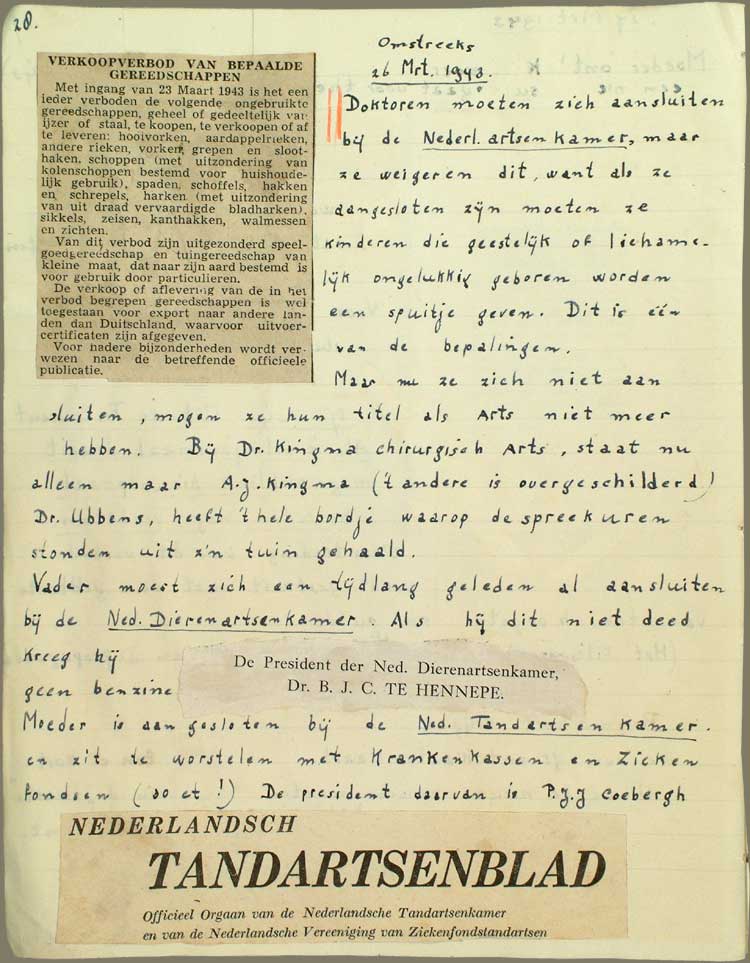 28.
VERKOOPVERBOD VAN BEPAALDE
GEREEDSCHAPPEN
Met ingang van 23 Maart 1943 is het een
ieder verboden de volgende ongebruikte
gereedschappen, geheel of gedeeltelijk var
ijzer of staal, te koopen, te verkoopen of af
te leveren: hooivorken, aardappelrieken,
andere rieken, vorken, grepen en sloot-
haken, schoppen (met uitzondering van
kolenschoppen bestemd voor huishoude-
lijk gebruik), spaden, schoffels, hakken
en schrepels, harken (met uitzondering
van uit draad vervaardigde bladharken),
sikkels, zeisen, kanthakken, walmessen
en zichten.
Van dit verbod zijn uitgezonderd speel-
goedgereedschap en tuingereedschap van
kleine maat, dat naar zijn aard bestemd is
voor gebruik door particulieren.
De verkoop of aflevering van de in het
verbod begrepen gereedschappen is wel
toegestaan voor export naar andere lan-
den dan Duitschland, waarvoor uitvoer-
certificaten zijn afgegeven.
Voor nadere bijzonderheden wordt ver-
wezen naar de betreffende officieele
publicatie.
Omstreeks
26 Mrt. 1943.
Doktoren moeten zich aansluiten
bij de Nederl. artsenkamer, maar
ze weigeren dit, want als ze
aangesloten zijn moeten ze
kinderen die geestelijk of lichame-
lijk ongelukkig geboren worden
een spuitje geven. Dit is één
van de bepalingen.
Maar nu ze zich niet aan
sluiten, mogen ze hun titel als Arts niet meer
hebben. Bij Dr. Kingma chirurgisch Arts, staat nu
alleen maar A.J. Kingma ('t andere is overgeschilderd)
Dr. Ubbens, heeft 't hele bordje waarop de spreekuren
stonden uit z'n tuin gehaald.
Vader moest zich een tijdlang geleden al aansluiten
bij de Ned. Dierenartsenkamer. Als hij dit niet deed
kreeg hij
geen benzine
De President der Ned. Dierenartsenkamer,
Dr. B. J. C. TE HENNEPE.
Moeder is aangesloten bij de Ned. Tandartsenkamer.
en zit te worstelen met Krankenkassen en Zieken
fondsen (so et!) De president daarvan is P.J.J Coebergh
NEDERLANDSCH
TANDARTSENBLAD
Officieel Orgaan van de Nederlandsche Tandartsenkamer
en van de Nederlandsche Vereeniging van Ziekenfondstandartsen